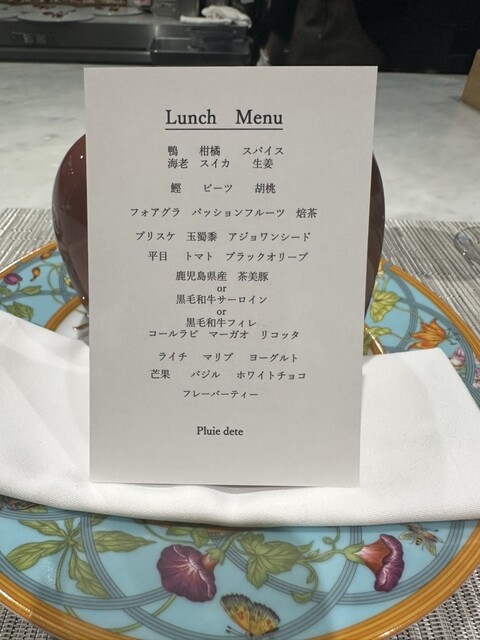 Lunch Menu
鴨 柑橘 スパイス
海老 スイカ 生姜
鰹 ビーツ 胡桃
フォアグラ パッションフルーツ 焙茶
ブリスケ 玉蜀黍 アジョワンシード
平目 トマト ブラックオリーブ
鹿児島県産 茶美豚
or
黒毛和牛サーロイン
or
黒毛和牛フィレ
コールラビ マーガオ リコッタ
ライチ マリブ ヨーグルト
芒果 バジル ホワイトチョコ
フレーバーティー
Pluie dete